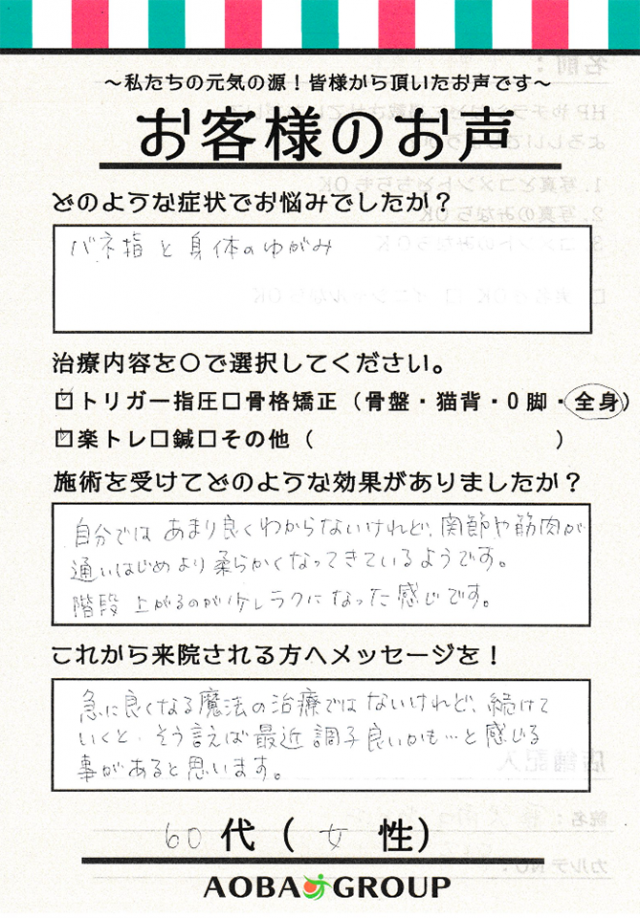 ~私たちの元気の源！皆様から頂いたお声です~
お客様のお声
どのような症状でお悩みでしたか？
バネ指と身体のゆがみ
治療内容を〇で選択してください。
☑トリガー指圧☐骨格矯正（骨盤・猫背・O脚・全身）
☑楽トレ☐鍼☐その他（　　　　　　　　　）
施術を受けてどのような効果がありましたか？
自分ではあまり良くわからないけれど、関節や筋肉が
通いはじめより柔らかくなってきているようです。
階段上がるのが少しラクになった感じです。
これから来院される方へメッセージを！
急に良くなる魔法の治療ではないけれど、続けて
いくと、そう言えば最近調子良いかも…と感じる
事があると思います。
60代（女性）
AOBA GROUP